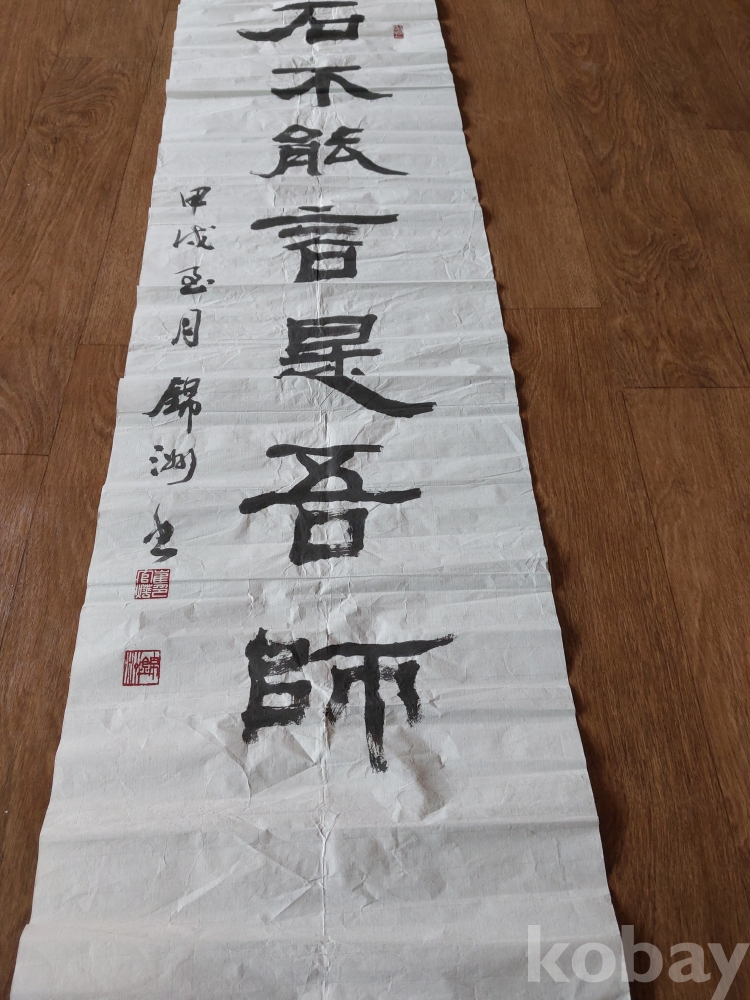 石不能言是吾師
甲戌至月 錦洲 書
錦洲
kobay